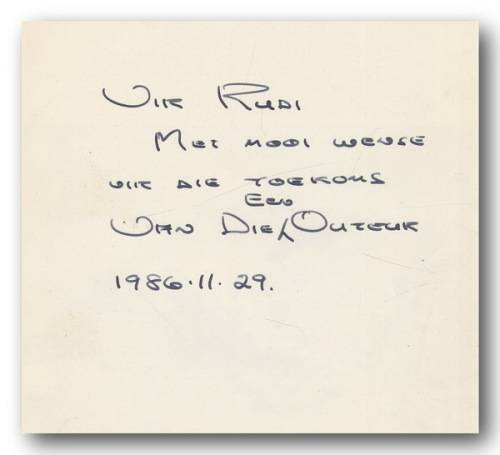 Vir Rudi
Met mooi wense
vir die toekoms
Van Die Een Outeur
1986.11.29.